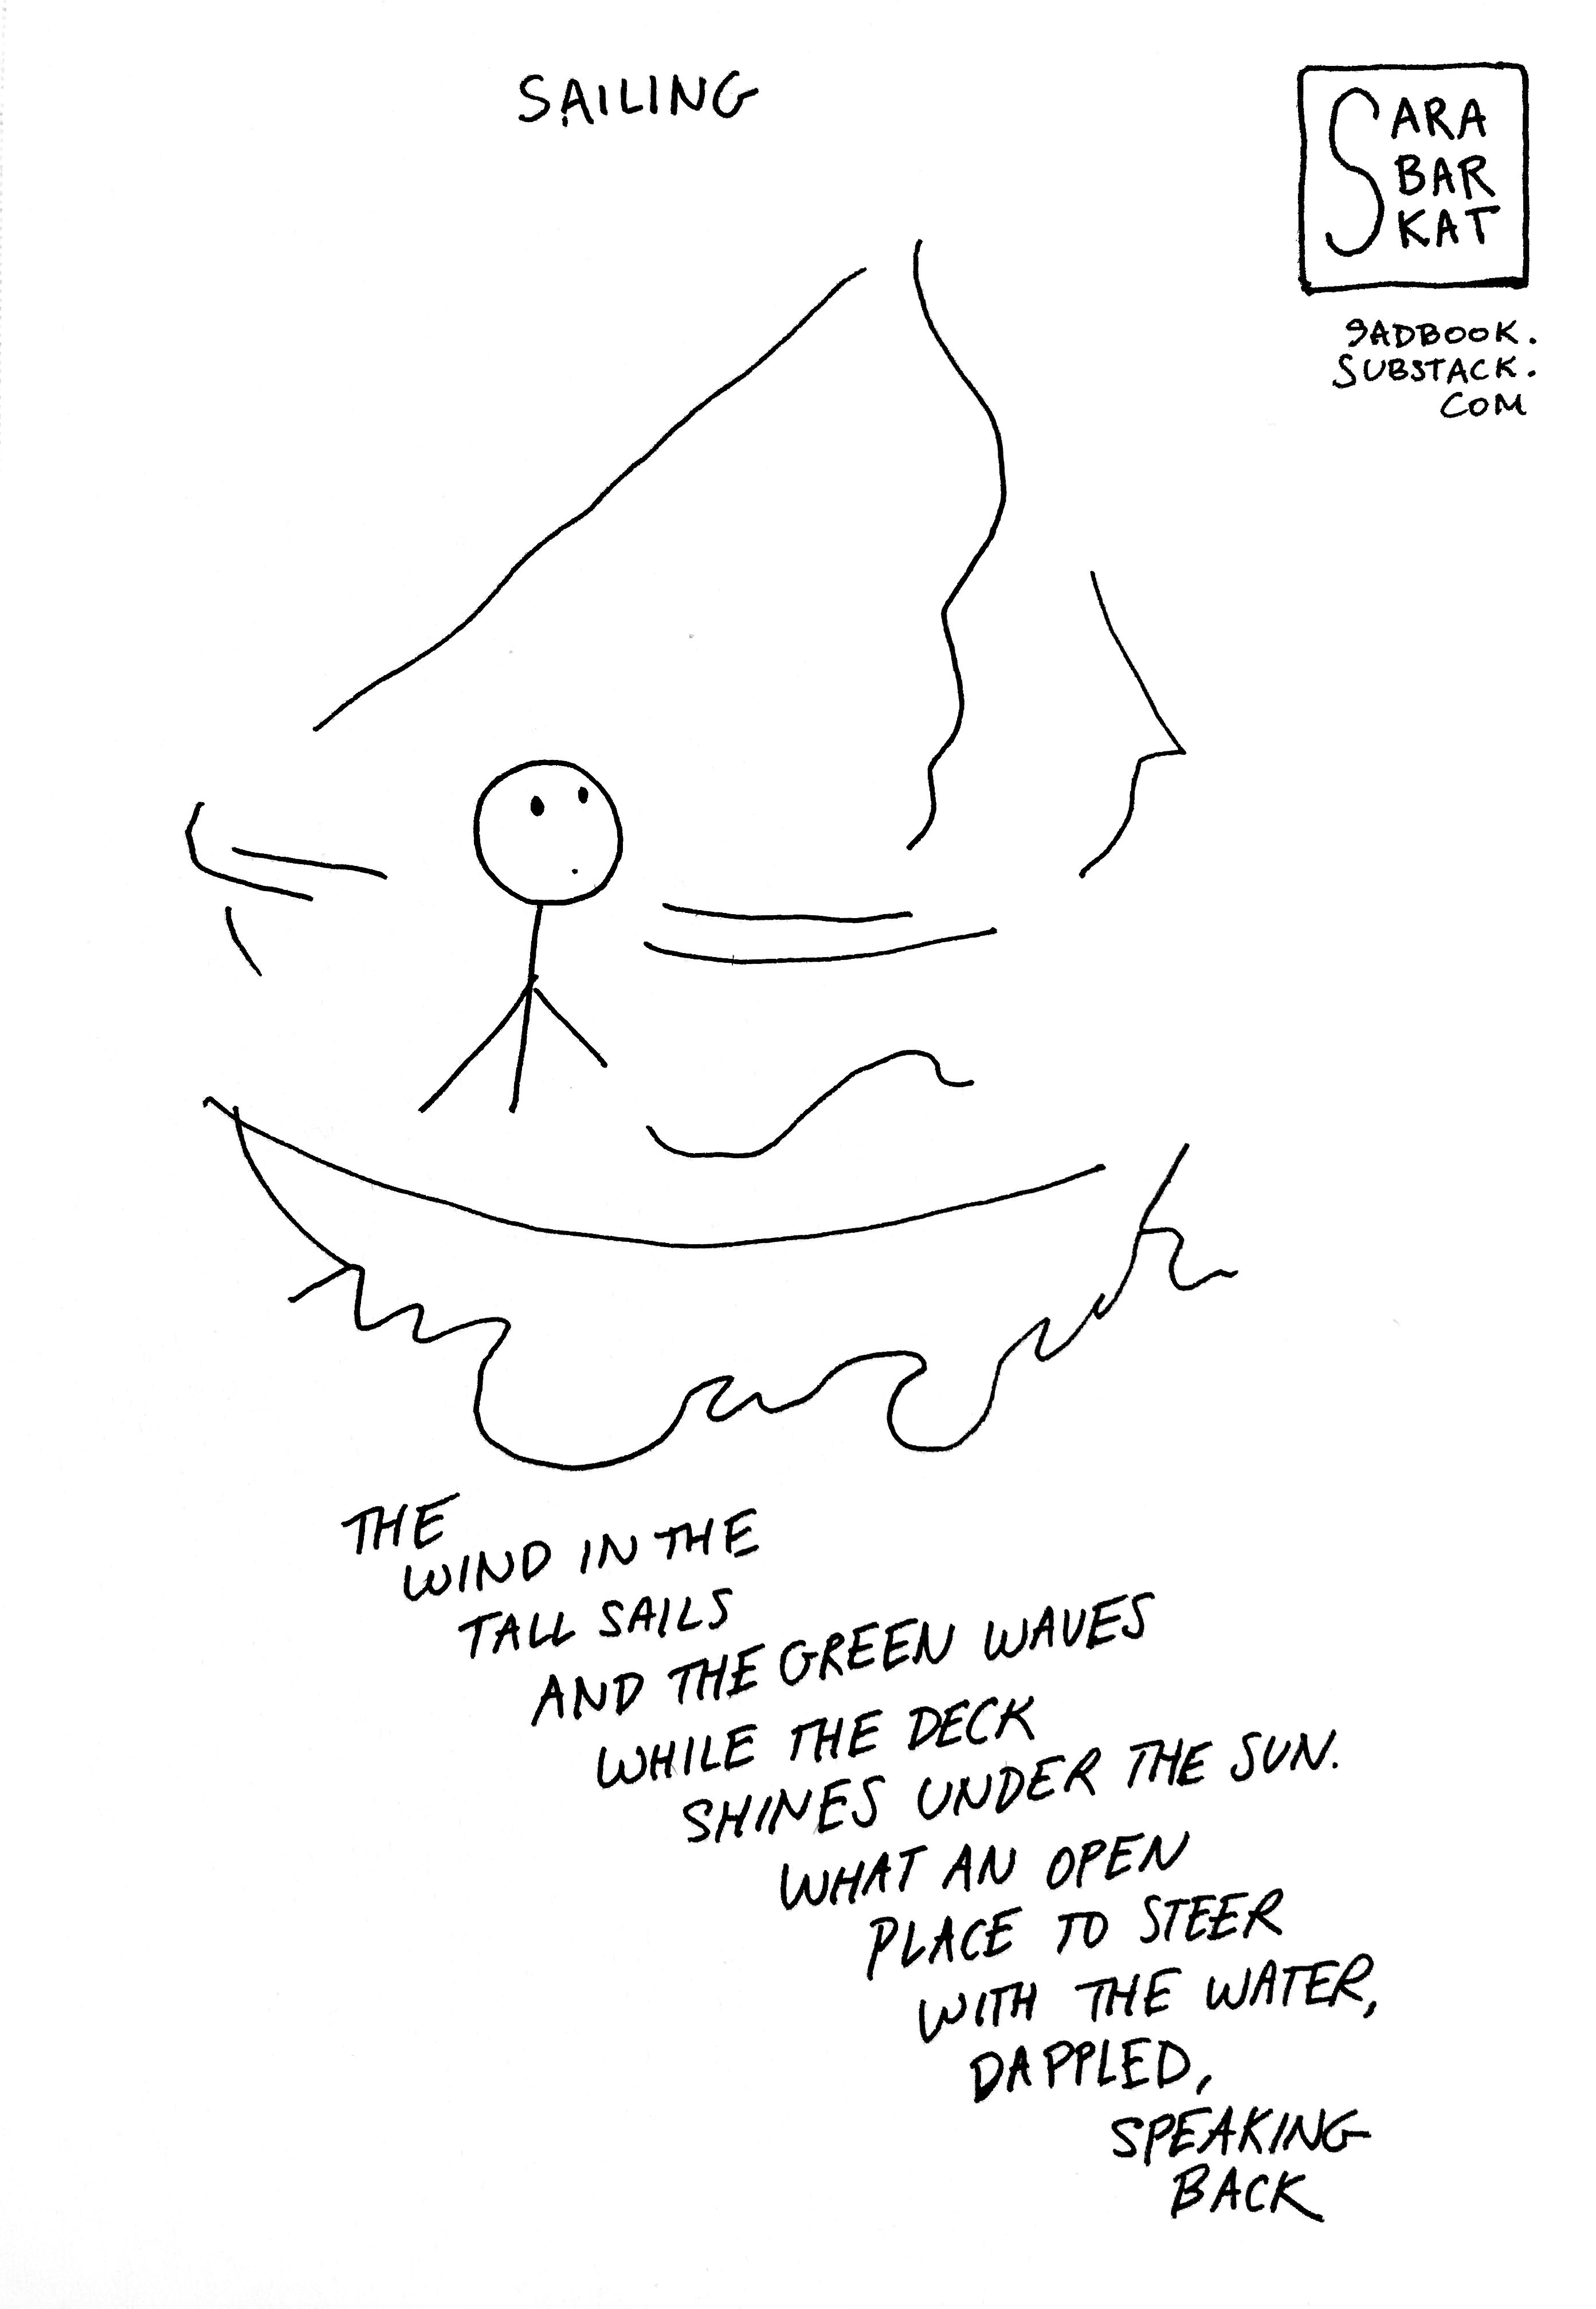 SAILING
SARA
BAR
KAT
SADBOOK.
SUBSTACK.
COM
THE
WIND IN THE
TALL SAILS
AND THE GREEN WAVES
WHILE THE DECK
SHINES UNDER THE SUN.
WHAT AN OPEN
PLACE TO STEER
WITH THE WATER,
DAPPLED,
SPEAKING
BACK